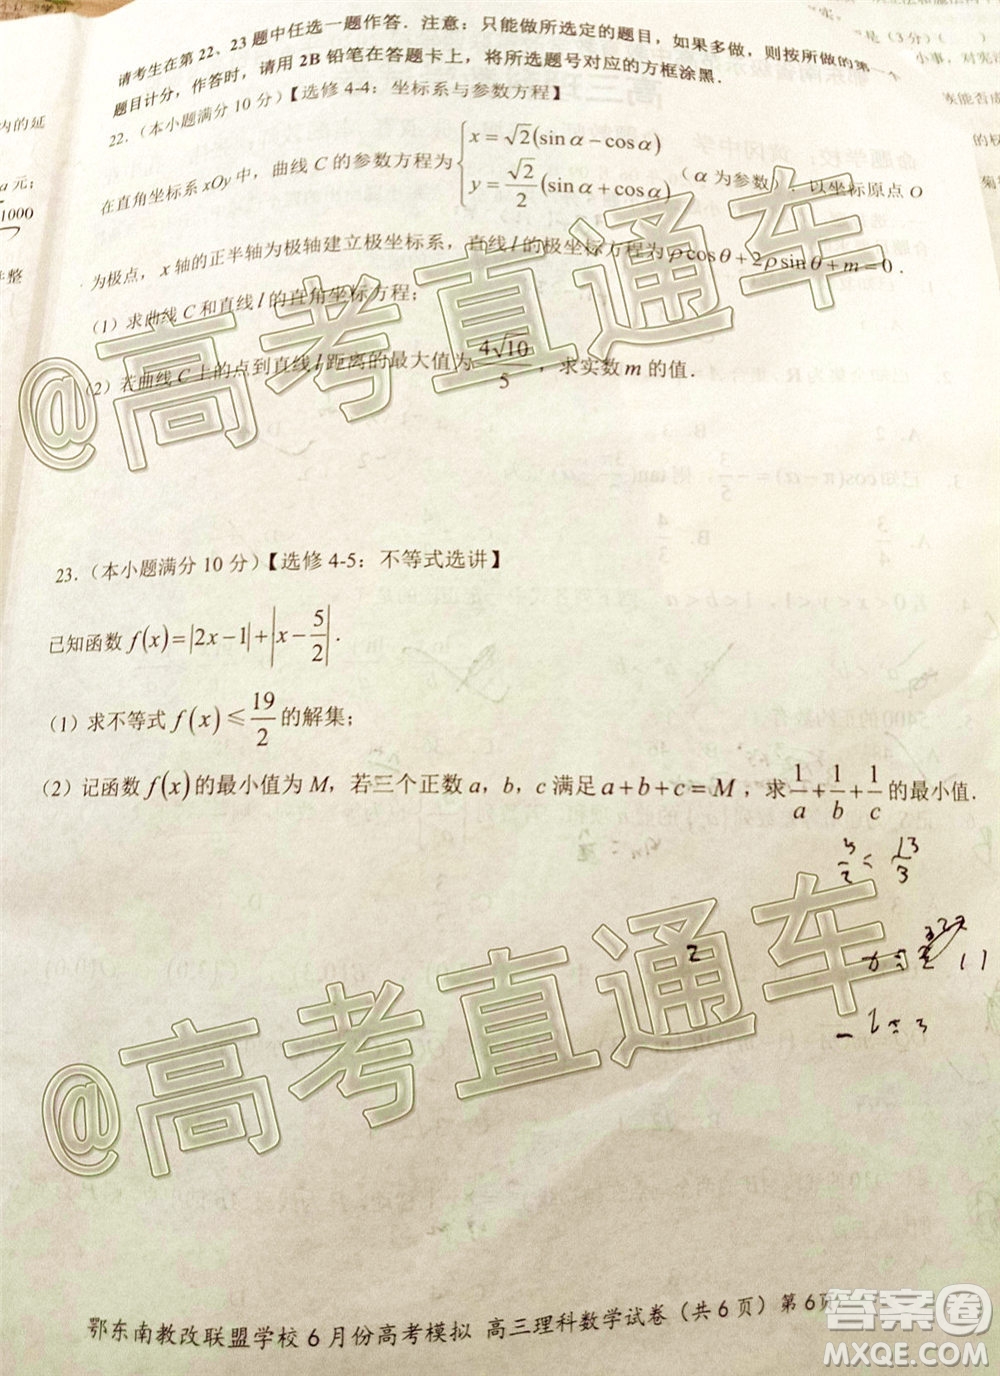 请考生在第 22、23 题中任选一题作答．注意：只能做所选定的题目，如果多做，则按所做的第一个
题目计分，作答时，请用 2B 铅笔在答题卡上，将所选题号对应的方框涂黑．
22．（本小题满分 10 分）【选修 4-4：坐标系与参数方程】
在直角坐标系 xOy 中，曲线 C 的参数方程为 { x = √2(sin α − cos α)
y = √2/2 (sin α + cos α) （α 为参数），以坐标原点 O
为极点，x 轴的正半轴为极轴建立极坐标系，直线 l 的极坐标方程为 ρcosθ+2ρsinθ+m=0．
（1）求曲线 C 和直线 l 的直角坐标方程；
（2）若曲线 C 上的点到直线 l 距离的最大值为 4√10/5，求实数 m 的值．
@高考直通车
23．（本小题满分 10 分）【选修 4-5：不等式选讲】
已知函数 f(x)=|2x−1|+|x−5/2|．
（1）求不等式 f(x)≤19/2 的解集；
（2）记函数 f(x) 的最小值为 M，若三个正数 a，b，c 满足 a+b+c=M，求 1/a+1/b+1/c 的最小值．
@高考直通车
鄂东南教改联盟学校 6 月份高考模拟 高三理科数学试卷（共 6 页）第 6 页
答案圈
MXQE.COM
内的延
a 元；
1000
整
是（3分）（ ）
小事，对宪法
族能否成
的权